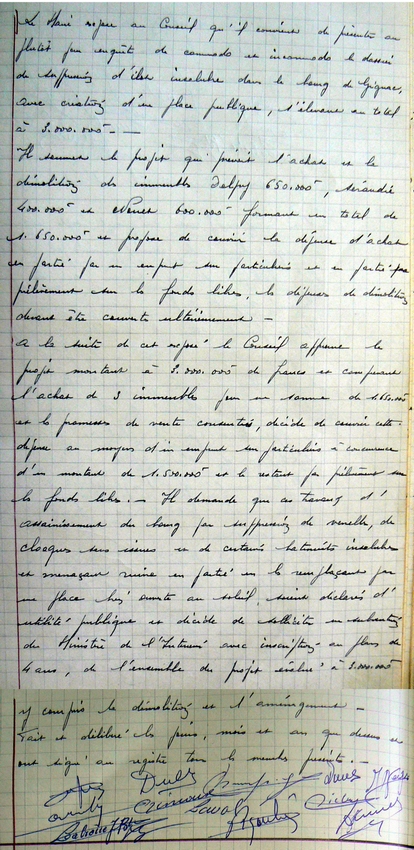 Le Maire expose au Conseil qu'il convient de présenter au
plutôt pour enquête de commodo et incommodo le dossier
de suppression d'îlot insalubre dans le bourg de Gignac,
avec création d'une place publique, s'élevant en total
à 3.000.000 - -
Il soumet le projet qui prévoit l'achat et la
démolition des immeubles Delpy 650.000, 
400.000 et 600.000 formant un total de
1.650.000 et propose de couvrir la dépense d'achat
en partie par un emprunt aux particuliers et en partie par
prélèvement sur les fonds libres, les dépenses de démolition
devant être couvertes ultérieurement -
A la suite de cet exposé le Conseil approuve le
projet montant à 3.000.000 de francs et comprenant
l'achat de 3 immeubles pour une somme de 1.650.000
et les promesses de vente consenties, décide de couvrir cette
dépense au moyen d'un emprunt aux particuliers à concurrence
d'un montant de 1.500.000 et le restant par prélèvement sur
les fonds libres. - Il demande que ces travaux d'
assainissement du bourg par suppression de venelle, de
cloaques sans issues et de certains bâtiments insalubres
et menaçant ruine en partie en les remplaçant par
une place ouverte au soleil, soient déclarés d'
utilité publique et décide de solliciter une subvention
du Ministère de l'Intérieur avec inscription au plan de
4 ans, de l'ensemble du projet évalué à 3.000.000
y compris la démolition et l'aménagement -
Fait et délibéré les jours, mois et an que dessus et
ont signé au registre tous les membres présents. -